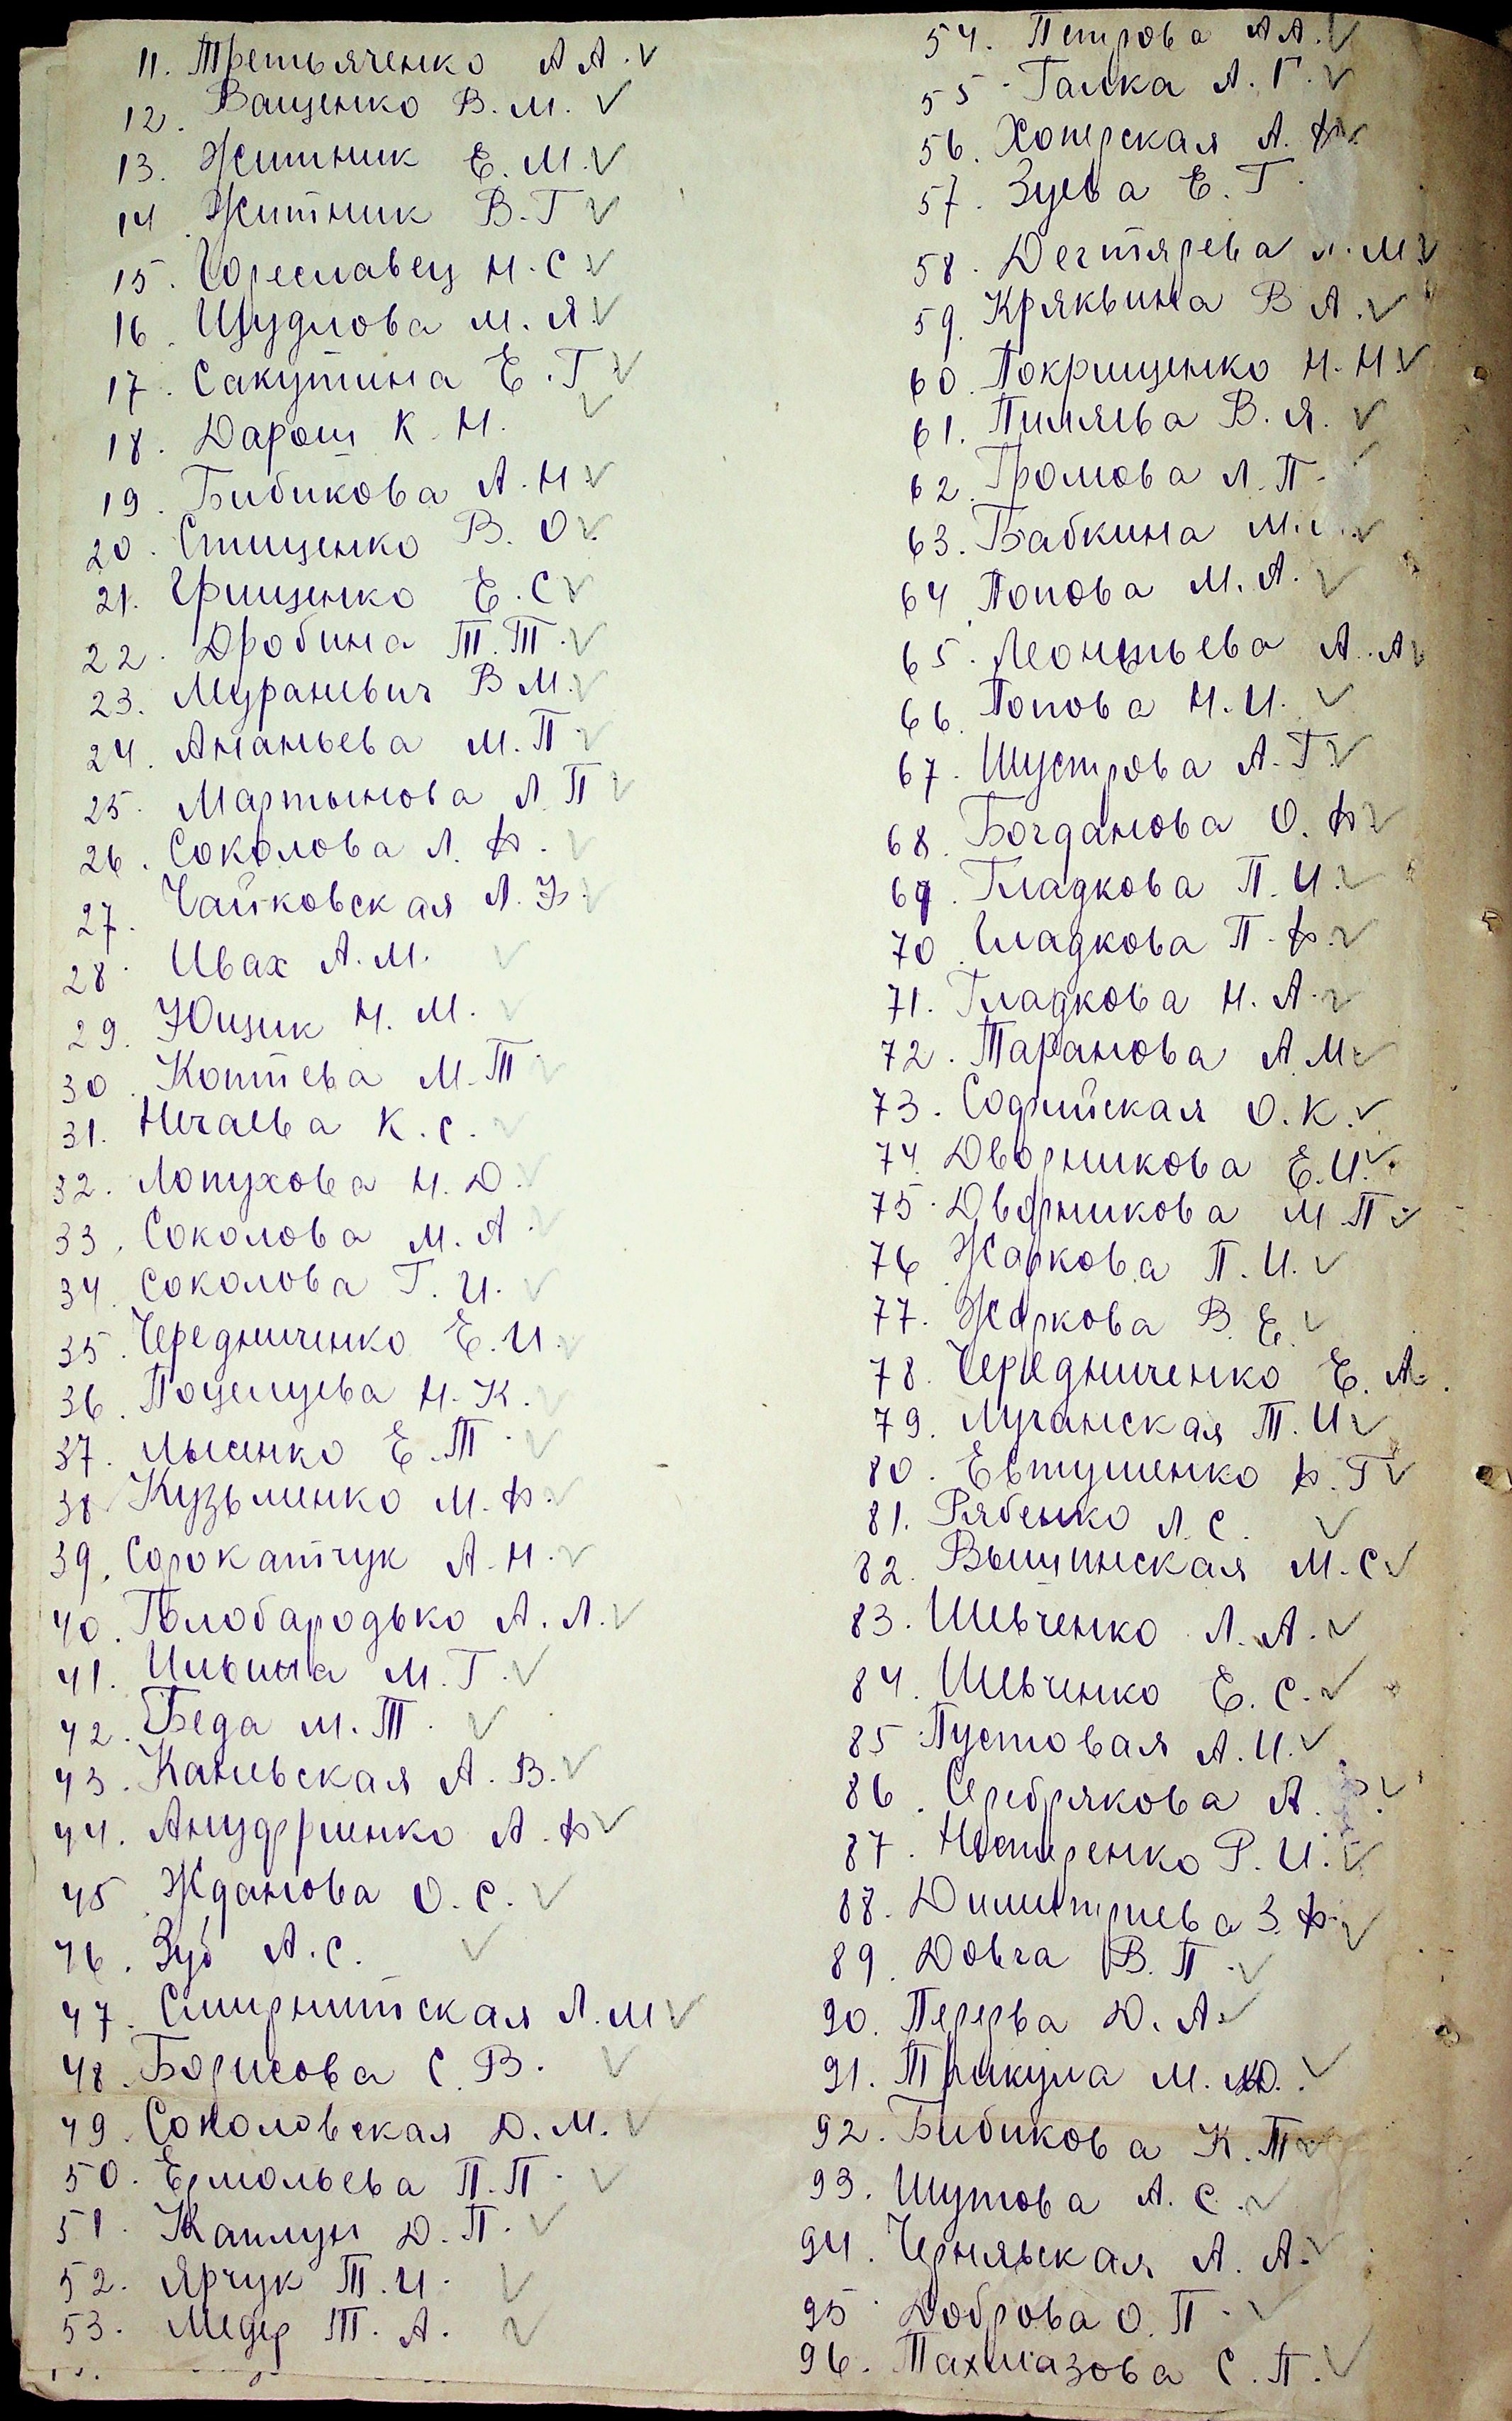 11. Третьяченко А А.
12. Ващенко В. М.
13. Житник Е. М.
14 Житник В. Г
15. Гореславец Н. С
16. Шудлова М. Я.
17. Сакутина Е. Г.
18. Дарош К. Н.
19. Бибикова А. Н
20. Стищенко В. О.
21. Грищенко Е. С
22. Дробина Т. Т.
23. Мураневич В М.
24. Ананьева М. П
25. Мартынова Л. П
26. Соколова Л. Ф.
27. Чайковская Л. Ф.
28. Ивах А. М.
29. Ющик Н. М.
30. Коптева М. Т
31. Нечаева К. С.
32. Лопухова Н. Д.
33. Соколова М. А.
34. Соколова Г. И.
35. Чередниченко Е. И
36. Поцелуева Н. К.
37. Лысенко Е. Т
38 Кузьменко М. Ф.
39. Сорокатчук А. Н.
40. Голобародько А. Л.
41. Ильина М. Г.
42. Беда М. Т.
43. Каневская А. В.
44. Ануфриенко А. Ф
45. Жданова О. С.
46. Зуб А. С.
47. Смирнитская Л. М
48. Борисова С. В.
49. Соколовская Д. М.
50. Ермольева П. П.
51. Каплун Д. П.
52. Ярчук Т. И.
53. Медер Т. А.
54. Петрова А А.
55. Галка А. Г.
56. Хоперская А. Ф.
57. Зуева Е. Г.
58. Дегтярева М
59. Кряквина В А.
60. Покрищенко Н. Н.
61. Пиляева В. Я.
62. Громова Л. П.
63. Бабкина М.
64 Попова М. А.
65. Леонтьева А. А
66. Попова Н. И.
67. Шустрова А. Г.
68. Богданова О. Ф
69. Гладкова П. И.
70. Гладкова П. Ф.
71. Гладкова Н. А.
72. Таранова А. М.
73. Содрийская О. К.
74. Дворникова Е. И.
75. Дворникова М П.
76. Жаркова П. И.
77. Жаркова В. Е.
78. Чередниченко Е. А.
79. Луганская Т. И
80. Евтушенко Ф. Г
81. Рябенко Л. С.
82. Вышинская М. С
83. Шевченко Л. А.
84. Шевченко Е. С.
85 Пустовая А. И.
86. Серебрякова А.
87. Нестеренко Р. И.
88. Димитриева З. Ф.
89. Довга В. П.
90. Перерва Д. А.
91. Трикула М. Ю.
92. Бибикова К. Т
93. Шутова А. С.
94. Чернявская А. А.
95. Доброва О. П.
96. Тахмазова С. П.